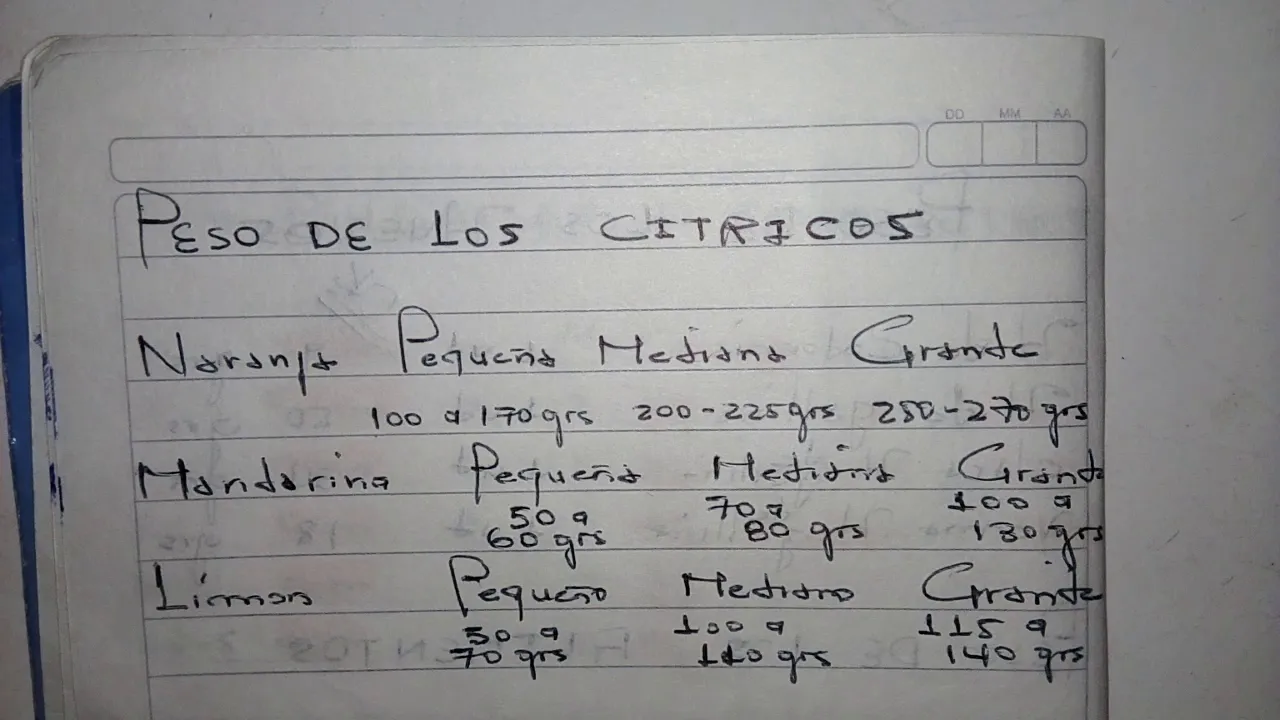 DD MM AA
PESO DE LOS CITRICOS
Naranja Pequeña Mediana Grande
100 a 170 grs 200-225 grs 250-270 grs
Mandarina Pequeña Mediana Grande
50 a 70 a 100 a
60 grs 80 grs 130 grs
Limon Pequeño Mediano Grande
50 a 100 a 115 a
70 grs 110 grs 140 grs